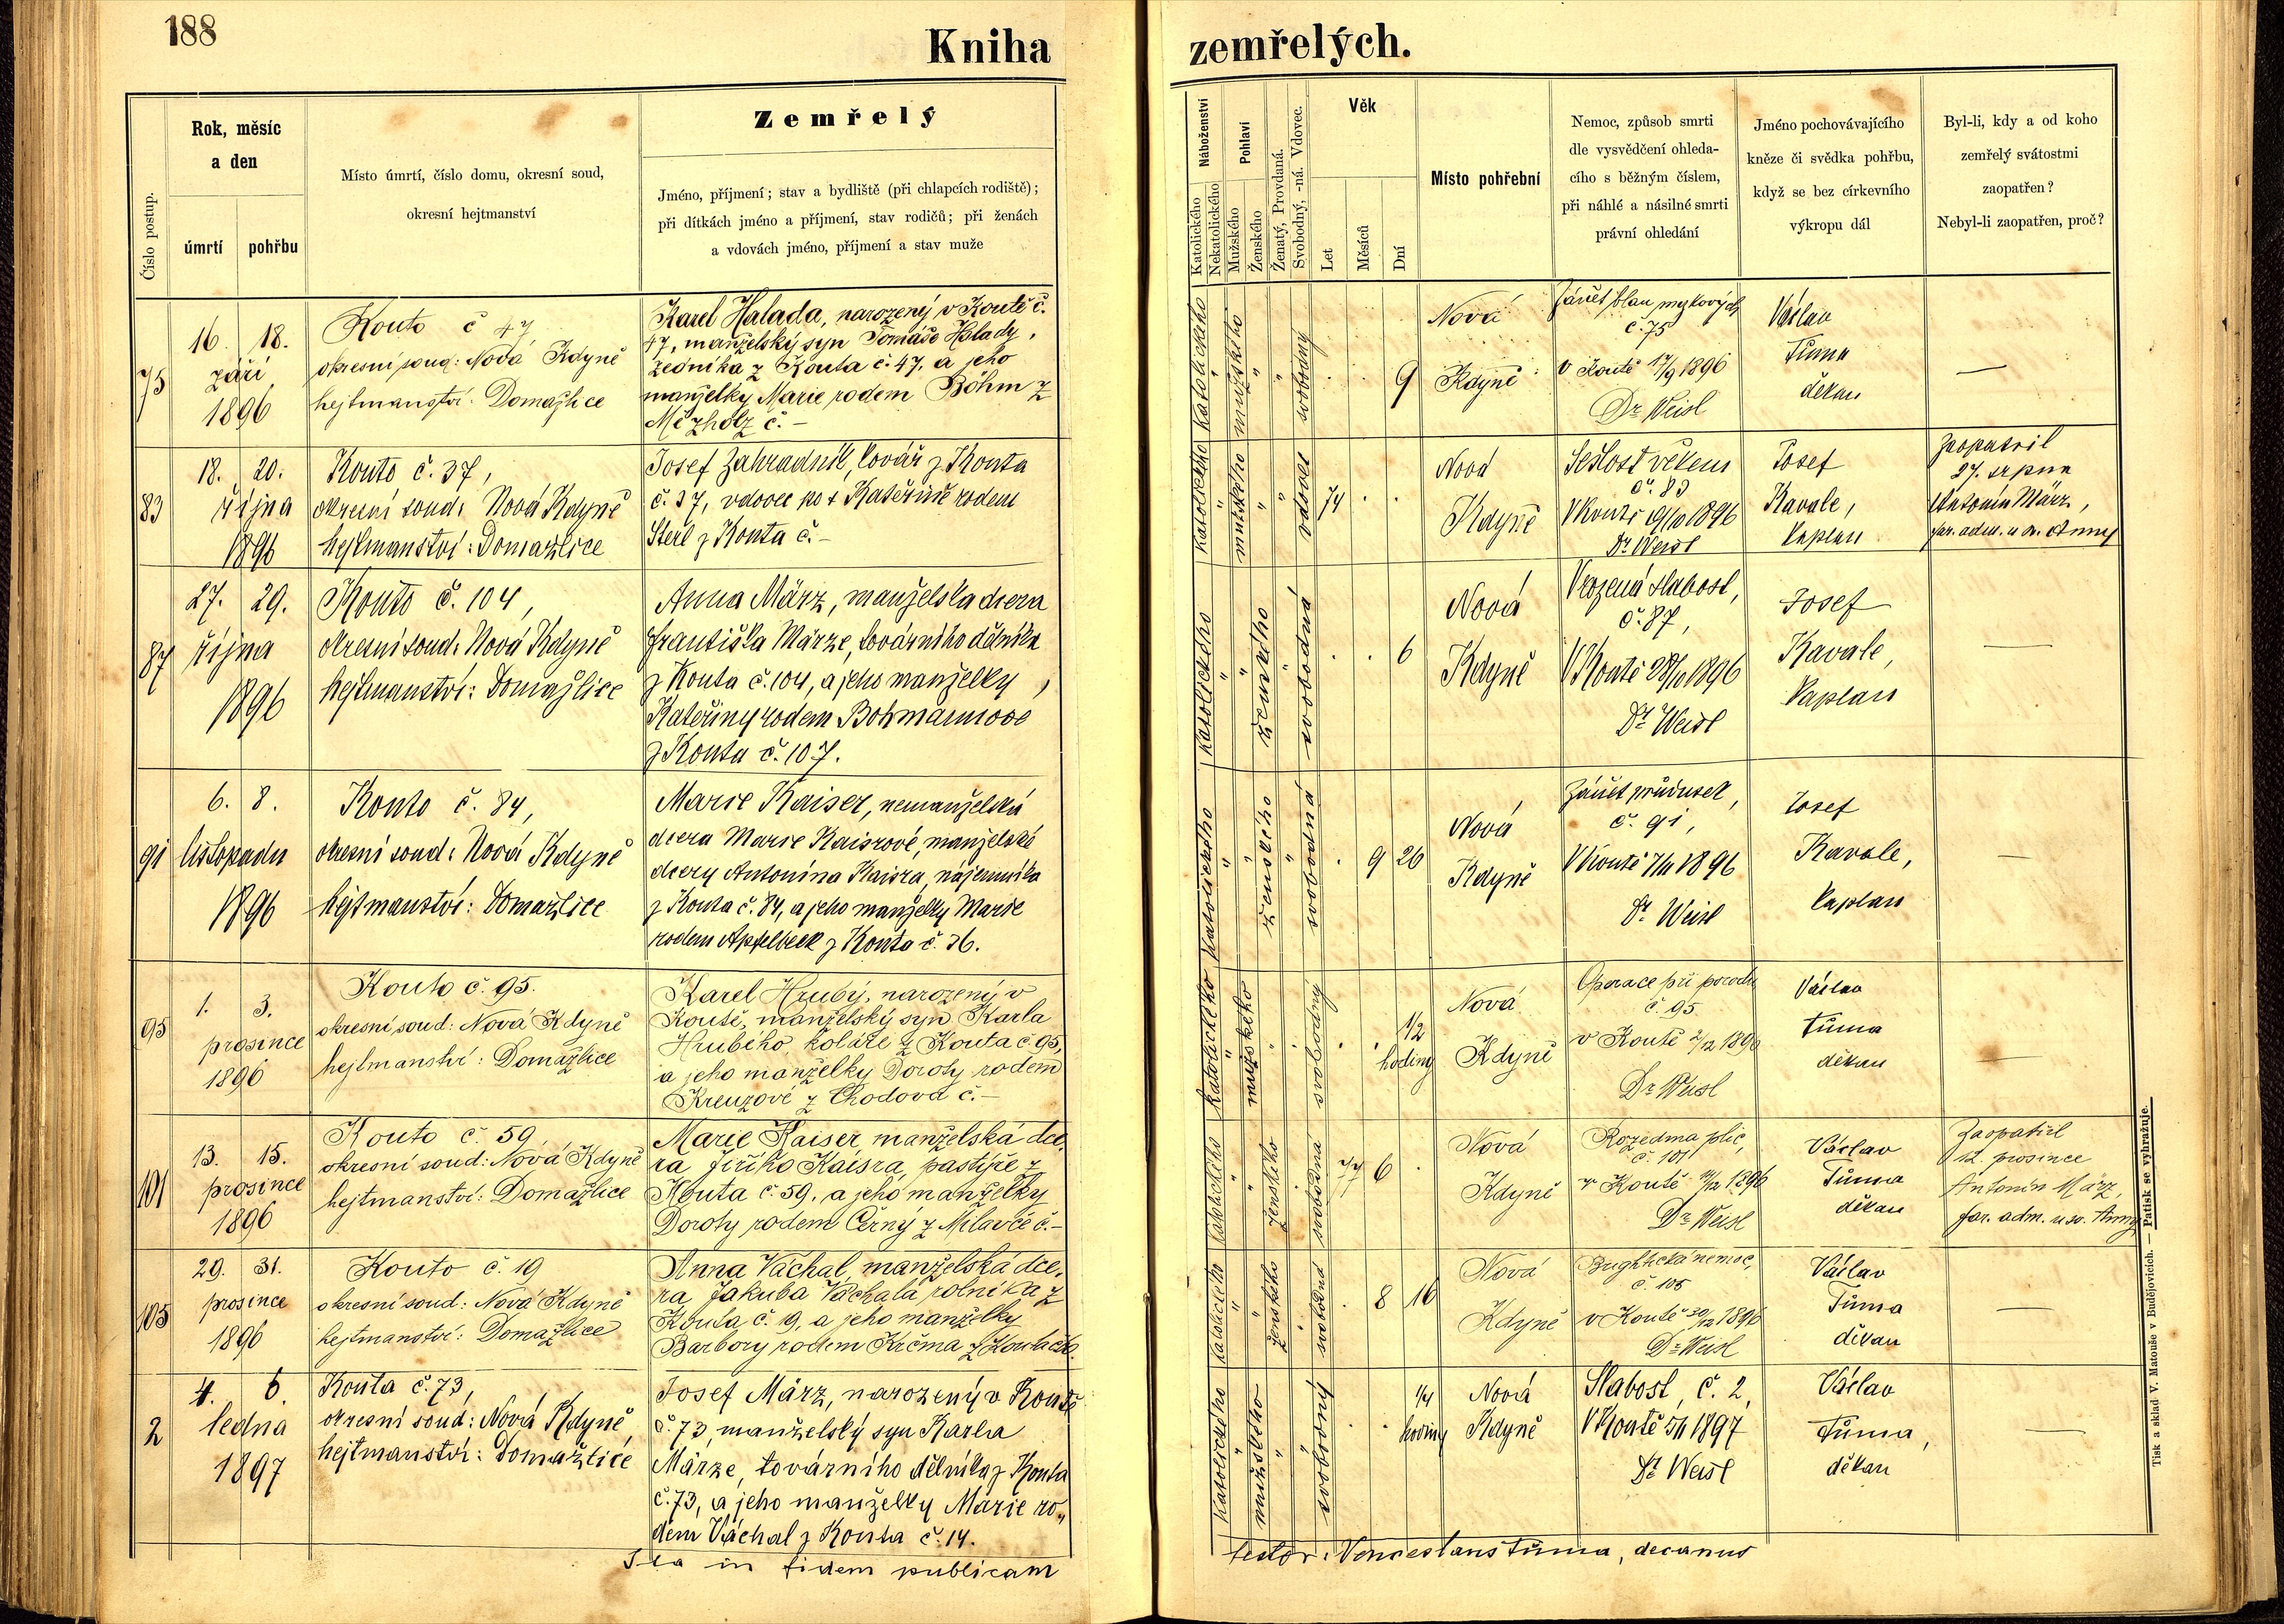 188
Kniha
zemřelých.
Číslo postup.
Rok, měsíc
a den
úmrtí
pohřbu
Místo úmrtí, číslo domu, okresní soud,
okresní hejtmanství
Zemřelý
Jméno, příjmení; stav a bydliště (při chlapcích rodiště);
při dítkách jméno a příjmení, stav rodičů; při ženách
a vdovách jméno, příjmení a stav muže
Náboženství
Katolického
Nekatolického
Pohlaví
Mužského
Ženského
Ženatý, Provdaná.
Svobodný, -ná. Vdovec.
Věk
Let
Měsíců
Dní
Místo pohřební
Nemoc, způsob smrti
dle vysvědčení ohleda-
cího s běžným číslem,
při náhlé a násilné smrti
právní ohledání
Jméno pochovávajícího
kněze či svědka pohřbu,
když se bez církevního
výkropu dál
Byl-li, kdy a od koho
zemřelý svátostmi
zaopatřen?
Nebyl-li zaopatřen, proč?
75
16. 18.
září
1896
Kouto č 47
okresní soud: Nová Kdyně
hejtmanství: Domažlice
Karel Halada, narozený v Koutě č.
47, manželský syn Tomáše Halady,
zedníka z Kouta č. 47, a jeho
manželky Marie rodem Böhm z
Mezholz č. –
Katolického
mužského
svobodný
9
Nová
Kdyně
Zánět blan mozkových
č. 75
v Koutě 17/9 1896
Dr Weisl
Václav
Tůma
děkan
—
83
18. 20.
října
1896
Kouto č. 37,
okresní soud: Nová Kdyně
hejtmanství: Domažlice
Josef Zahradník, kovář z Kouta
č. 37, vdovec po + Kateřině rodem
Sterl z Kouta č. –
Katolického
mužského
vdovec
74
Nová
Kdyně
Sešlost věkem
č. 83
V Koutě 19/10 1896
Dr Weisl
Josef
Kavale,
kaplan
Zaopatřil
27. srpna
Antonín März,
far. adm. u sv. Anny
87
27. 29.
října
1896
Kouto č. 104,
okresní soud: Nová Kdyně
hejtmanství: Domažlice
Anna März, manželská dcera
Františka Märze, továrního dělníka
z Kouta č. 104, a jeho manželky,
Kateřiny rodem Bohmannové
z Kouta č. 107.
Katolického
ženského
svobodná
6
Nová
Kdyně
Vrozená slabost,
č. 87,
V Koutě 28/10 1896
Dr Weisl
Josef
Kavale,
kaplan
—
91
6. 8.
listopadu
1896
Kouto č. 84,
okresní soud: Nová Kdyně
hejtmanství: Domažlice
Marie Kaiser, nemanželská
dcera Marie Kaisrové, manželské
dcery Antonína Kaisra, nájemníka
z Kouta č. 84, a jeho manželky Marie
rodem Apfelbeck z Kouta č. 36.
Katolického
ženského
svobodná
9 26
Nová
Kdyně
Zánět průdušek,
č. 91,
V Koutě 7/11 1896
Dr Weisl
Josef
Kavale,
kaplan
—
95
1. 3.
prosince
1896
Kouto č. 95.
okresní soud: Nová Kdyně
hejtmanství: Domažlice
Karel Hrubý, narozený v
Koutě, manželský syn Karla
Hrubého, koláře z Kouta č. 95,
a jeho manželky Doroty rodem
Kreuzové z Chodova č. –
Katolického
mužského
svobodný
1/2
hodiny
Nová
Kdyně
Operace při porodu
č. 95
v Koutě 2/12 1896
Dr Weisl
Václav
Tůma
děkan
—
101
13. 15.
prosince
1896
Kouto č. 59
okresní soud: Nová Kdyně
hejtmanství: Domažlice
Marie Kaiser, manželská dce-
ra Jiřího Kaisra, pastýře z
Kouta č. 59, a jeho manželky
Doroty rodem Černý z Milavče č. –
Katolického
ženského
svobodná
77 6
Nová
Kdyně
Rozedma plic,
č. 101
v Koutě 14/12 1896
Dr Weisl
Václav
Tůma
děkan
Zaopatřil
12. prosince
Antonín März,
far. adm. u sv. Anny
105
29. 31.
prosince
1896
Kouto č. 19
okresní soud: Nová Kdyně
hejtmanství: Domažlice
Anna Váchal, manželská dce-
ra Jakuba Váchala, rolníka z
Kouta č. 19, a jeho manželky
Barbory rodem Krčma z Kouta
Katolického
ženského
svobodná
8 16
Nová
Kdyně
Brightická nemoc,
č. 105
v Koutě 30/12 1896
Dr Weisl
Václav
Tůma
děkan
—
2
4. 6.
ledna
1897
Kouta č. 73,
okresní soud: Nová Kdyně,
hejtmanství: Domažlice
Josef März, narozený v Koutě
č. 73, manželský syn Karla
Märze, továrního dělníka z Kouta
č. 73, a jeho manželky Marie ro-
dem Váchal z Kouta č. 14.
Katolického
mužského
svobodný
1/4
hodiny
Nová
Kdyně
Slabost, č. 2,
V Koutě 5/1 1897
Dr Weisl
Václav
Tůma,
děkan
—
Ita in fidem publicam
testor: Venceslaus Tůma, decanus
Tisk a sklad V. Matouše v Budějovicích. — Patisk se vyhražuje.